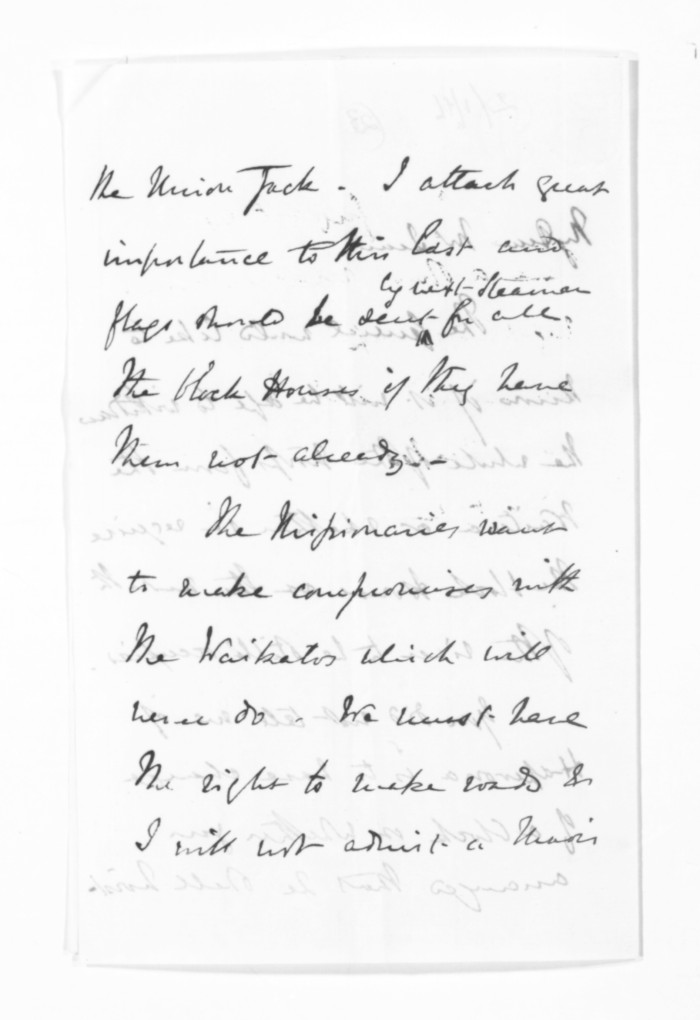 the Union Jack - I attach great
importance to this last and
by next Steamer
flags should be sent for all
the block Houses if they have
them not already -
The Missionaries want
to make compromises with
the Waikatos which will
never do - We must have
the right to make roads &
I will not admit a Maori